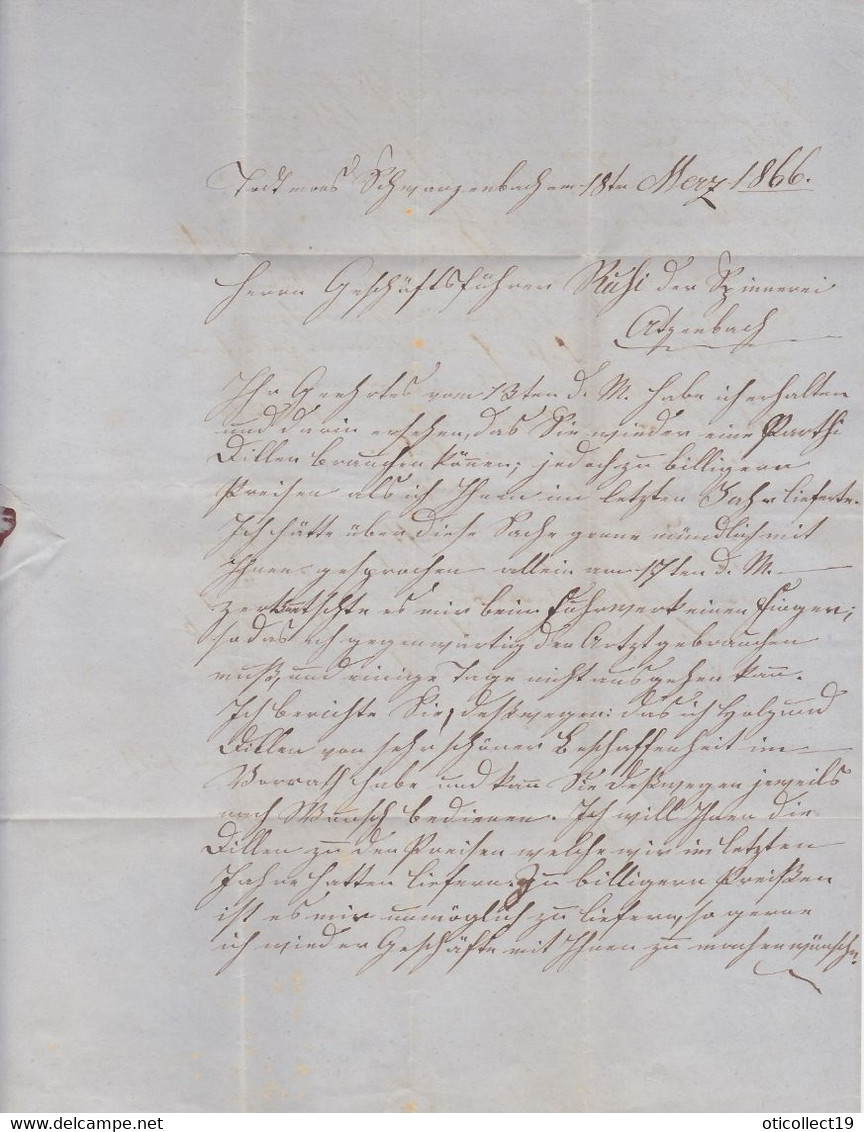 Todtmoos Schwarzenbach am 18ten Merz 1866.
Herrn Geschäftsführer Ruhi der Spinnerei
Atzenbach
Ihr Geehrtes vom 13ten d. M. habe ich erhalten
und darin ersehen, das Sie wieder eine Parthi
Dillen brauchen können; jedoch zu billigern
Preisen als ich Ihnen im letzten Jahr lieferte.
Ich hätte über diese Sache gerne mündlich mit
Ihnen gesprochen allein am 17ten d. M.
zerkwetschte es mir beim Fuhrwerk einen Finger;
so das ich gegenwärtig den Artzt gebrauchen
muß, und einige Tage nicht ausgehen kann.
Ich berichte Sie, deßwegen: das ich Holz und
Dillen von sehr schöner Beschaffenheit im
Vorrath habe und kann Sie deßwegen jeweils
nach Wunsch bedienen. Ich will Ihnen die
Dillen zu den Preisen welche wir im letzten
Jahre hatten liefern. Zu billigern Preißen
ist es mir unmöglich zu liefern, so gerne
ich wieder Geschäfte mit Ihnen zu machen wünsche.
oticollect19